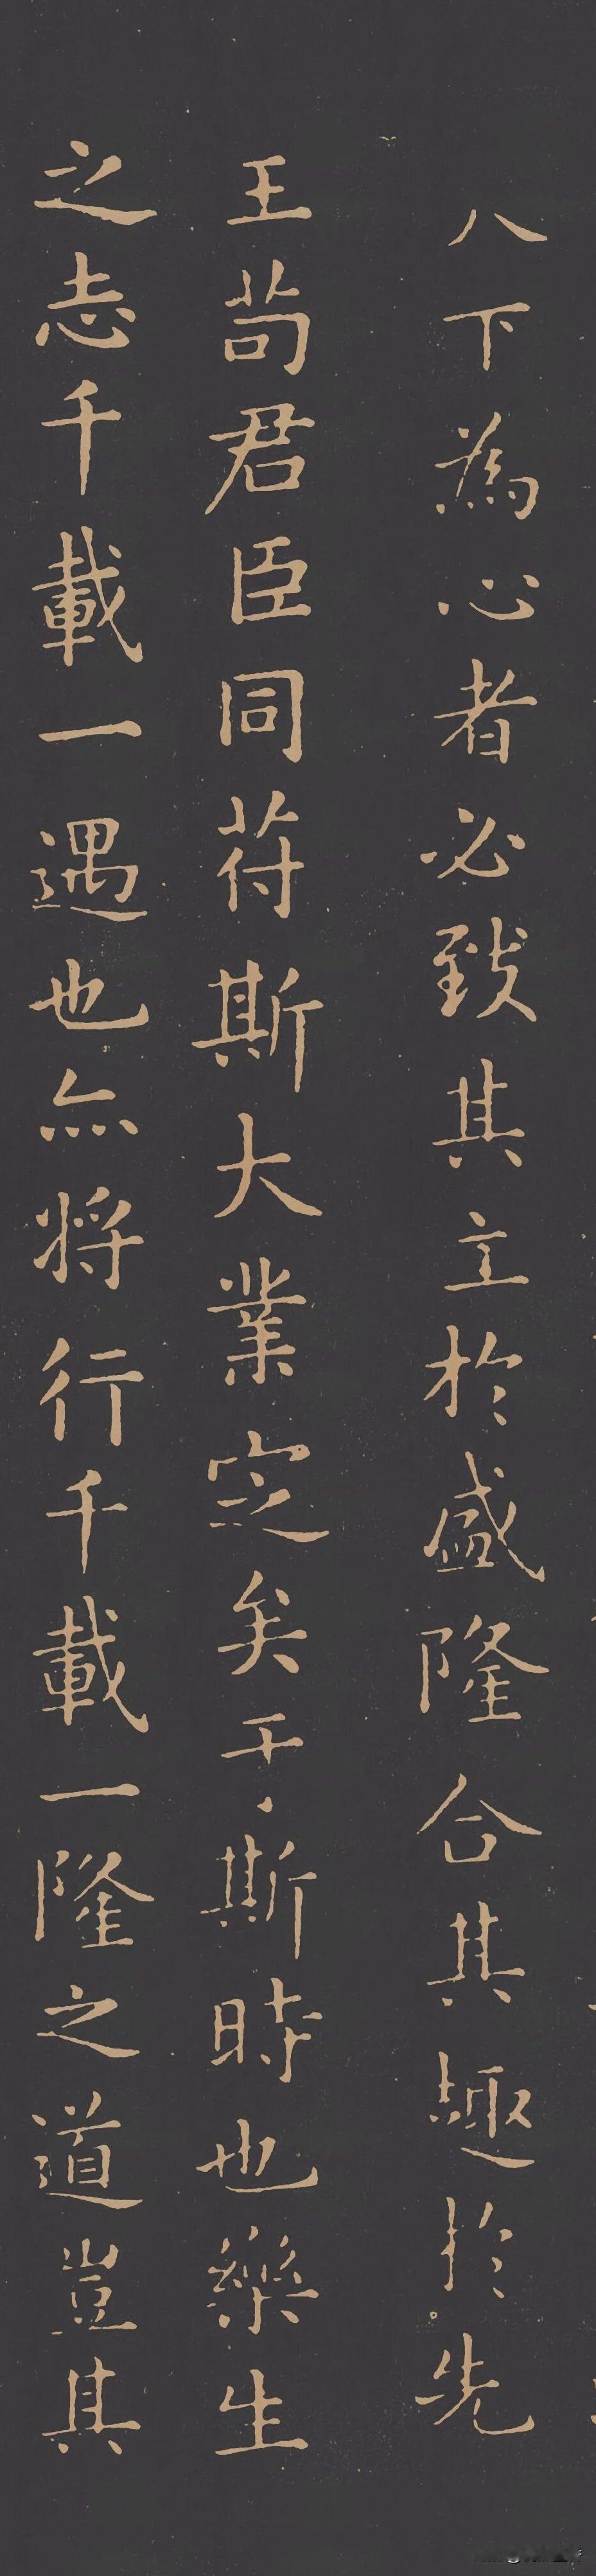 八下為心者必致其主於盛隆合其趣於先
王苟君臣同苻斯大業定矣于斯時也樂生
之志千載一遇也亦將行千載一隆之道豈其